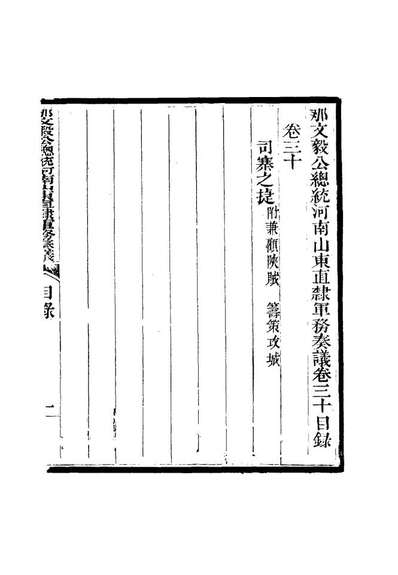 那文毅公總統河南山東直隸軍務奏議卷三十目錄
卷三十
司寨之捷附兼顧陝賊 籌策攻城
那文毅公總統河南山東直隸軍務奏議
目錄
二